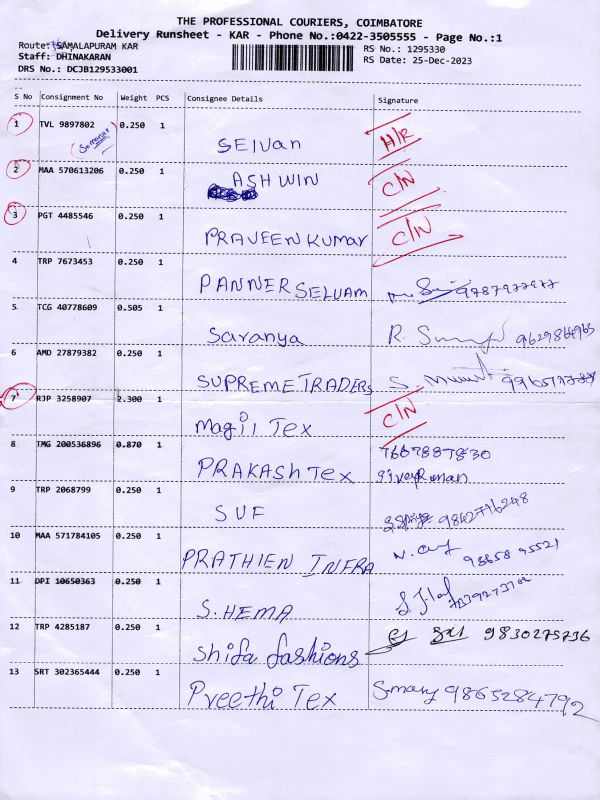 THE PROFESSIONAL COURIERS, COIMBATORE
Delivery Runsheet - KAR - Phone No.:0422-3505555 - Page No.:1
Route: SAMALAPURAM KAR
RS No.: 1295330
Staff: DHINAKARAN
RS Date: 25-Dec-2023
DRS No.: DCJB129533001
S No Consignment No Weight PCS Consignee Details Signature
1 TVL 9897802 0.250 1 SElVan H/R
2 MAA 570613206 0.250 1 ASHWIN C/N
3 PGT 4485546 0.250 1 PRAVEEN KUMAR C/N
4 TRP 7673453 0.250 1 PANNER SELVAM
5 TCG 40778609 0.505 1 Saranya R.
6 AMD 27879382 0.250 1 SUPREME TRADERS
7 RJP 3258907 2.300 1 Magil Tex C/N
8 TMG 200536896 0.870 1 PRAKASH Tex 7667887830
9 TRP 2068799 0.250 1 SUF 9842776248
10 MAA 571784105 0.250 1 PRATHIEN INFRA 98658 95521
11 DPI 10650363 0.250 1 S.HEMA
12 TRP 4285187 0.250 1 Shifa fashions 9830275736
13 SRT 302365444 0.250 1 Preethi Tex S.mary 9865284792